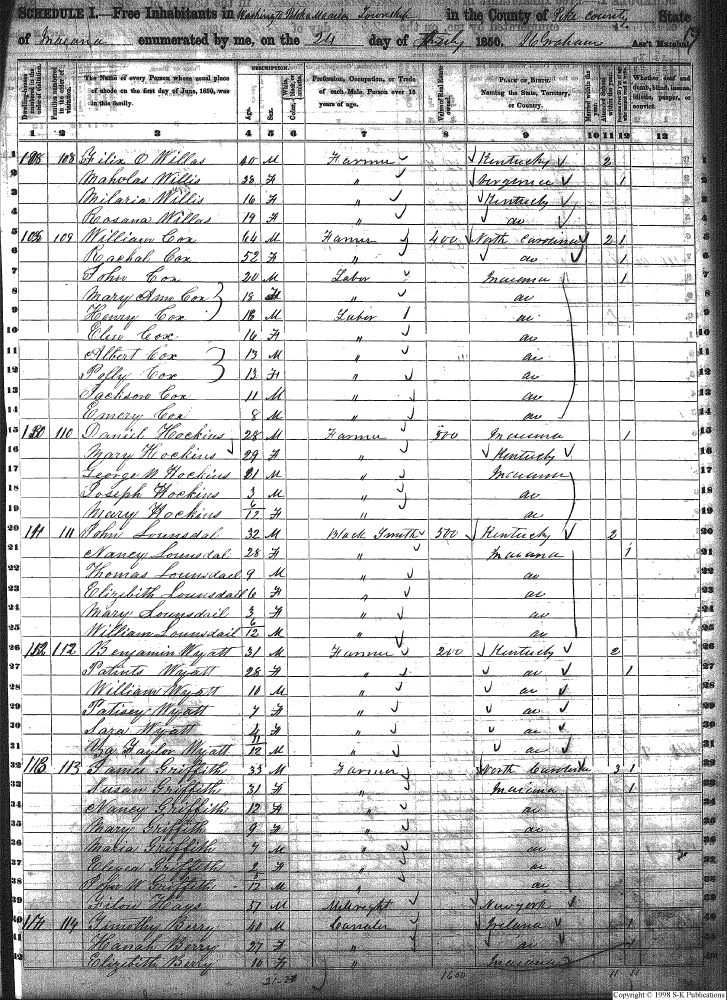 SCHEDULE I. Free Inhabitants in Township in the County of Pike County State
of Indiana enumerated by me, on the 24 day of July 1850. Graham Ass't Marshal
DESCRIPTION.
Dwelling-houses numbered in the order of visitation. Families numbered in the order of visitation. The Name of every Person whose usual place of abode on the first day of June, 1850, was in this family. Age. Sex. Color Profession, Occupation, or Trade of each Male Person over 15 years of age. Value of Real Estate owned. PLACE OF BIRTH. Naming the State, Territory, or Country. Married within the year. Whether deaf and dumb, blind, insane, idiotic, pauper, or convict.
1 2 3 4 5 6 7 8 9 10 11 12 13
1 108 108 Willas 40 M Farmer Kentucky 2
2 Maholas Willis 28 F " Virginia 1
3 Milaria Willis 16 F " Kentucky
4 Rosana Willas 19 F " do
5 109 William Cox 64 M Farmer 400 North Carolina 2 1
6 Rachal Cox 52 F " do 1
7 John Cox 20 M Labor Indiana 1
8 Mary Ann Cox 18 F " do
9 Henry Cox 18 M Labor do
10 Cox 16 F " do
11 Albert Cox 13 M " do
12 Polly Cox 13 F " do
13 Jackson Cox 11 M " do
14 Emery Cox 8 M " do
15 110 Daniel Hockins 28 M Farmer 500 Indiana 1
16 Mary Hockins 29 F " Kentucky
17 George W Hockins 21 M " Indiana
18 Joseph Hockins 3 M " do
19 Mary Hockins 6/12 F " do
20 111 111 John Lounsdal 32 M Black Smith 500 Kentucky 2
21 Nancy Lounsdal 28 F " Indiana 1
22 Thomas Lounsdael 9 M " do
23 Elizibith Lounsdall 6 F " do
24 Mary Lounsdail 3 F " do
25 William Lounsdail 6/12 M " do
26 112 112 Benjamin Wyatt 31 M Farmer 200 Kentucky 2
27 Wyatt 28 F " do 1
28 William Wyatt 10 M " do
29 Patisey Wyatt 7 F " do
30 Sara Wyatt 4 F " do
31 Taylor Wyatt 11/12 M " do
32 113 113 James Griffith 33 M Farmer North Carolina 3 1
33 Susan Griffith 31 F " Indiana 1
34 Nancy Griffith 12 F " do
35 Mary Griffith 9 F " do
36 Maria Griffith 7 M " do
37 Griffith 2 F " do
38 John W Griffeth M " do
39 Hays 37 M Millwright Newyork
40 114 114 Timothy Berry 40 M Ireland 1
41 Hanah Berry 27 F " do 1
42 Elizibith Berry 10 F " Indiana
1600 11 11
Copyright © 1998 S-K Publications